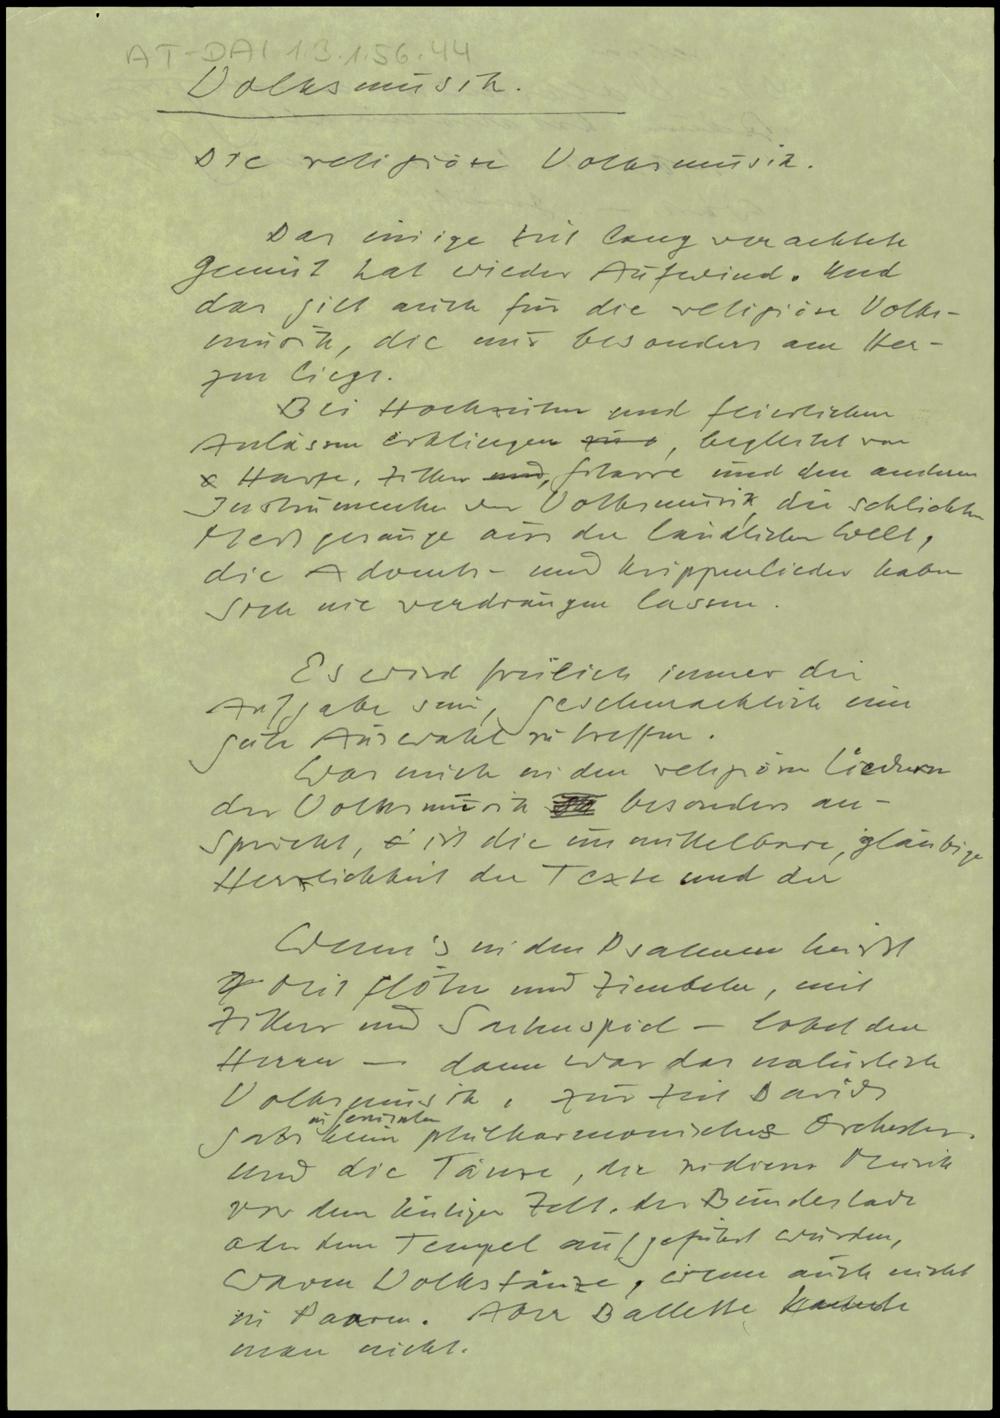 AT-DAI 1.3.1.56.44
Volksmusik.
Die religiöse Volksmusik.
Das einige Zeit lang verachtete
Gemüt hat wieder Aufwind. Und
das gilt auch für die religiöse Volks-
musik, die mir besonders am Her-
zen liegt.
Bei Hochzeiten und feierlichen
Anlässen erklingen, begleitet von
Harfe, Zither, Gitarre und den anderen
Instrumenten der Volksmusik, die schlichten
Messgesänge aus der ländlichen Welt,
die Advents- und Krippenlieder haben
sich nie verdrängen lassen.
Es wird freilich immer die
Aufgabe sein, geschmacklich eine
gute Auswahl zu treffen.
Was mich in den religiösen Liedern
der Volksmusik besonders an-
spricht, ist die unmittelbare, gläubige
Herzlichkeit der Texte und der
Wenn's in den Psalmen heisst
Mit Flöten und Zimbeln, mit
Zither und Saitenspiel - lobet den
Herrn - dann war das natürlich
Volksmusik, zur Zeit Davids
gab's in Jerusalem kein philharmonisches Orchester.
Und die Tänze, die zu dieser Musik
vor dem heiligen Zelt, der Bundeslade
oder dem Tempel aufgeführt wurden,
waren Volkstänze, wenn auch nicht
in Paaren. Aber Ballette kannte
man nicht.